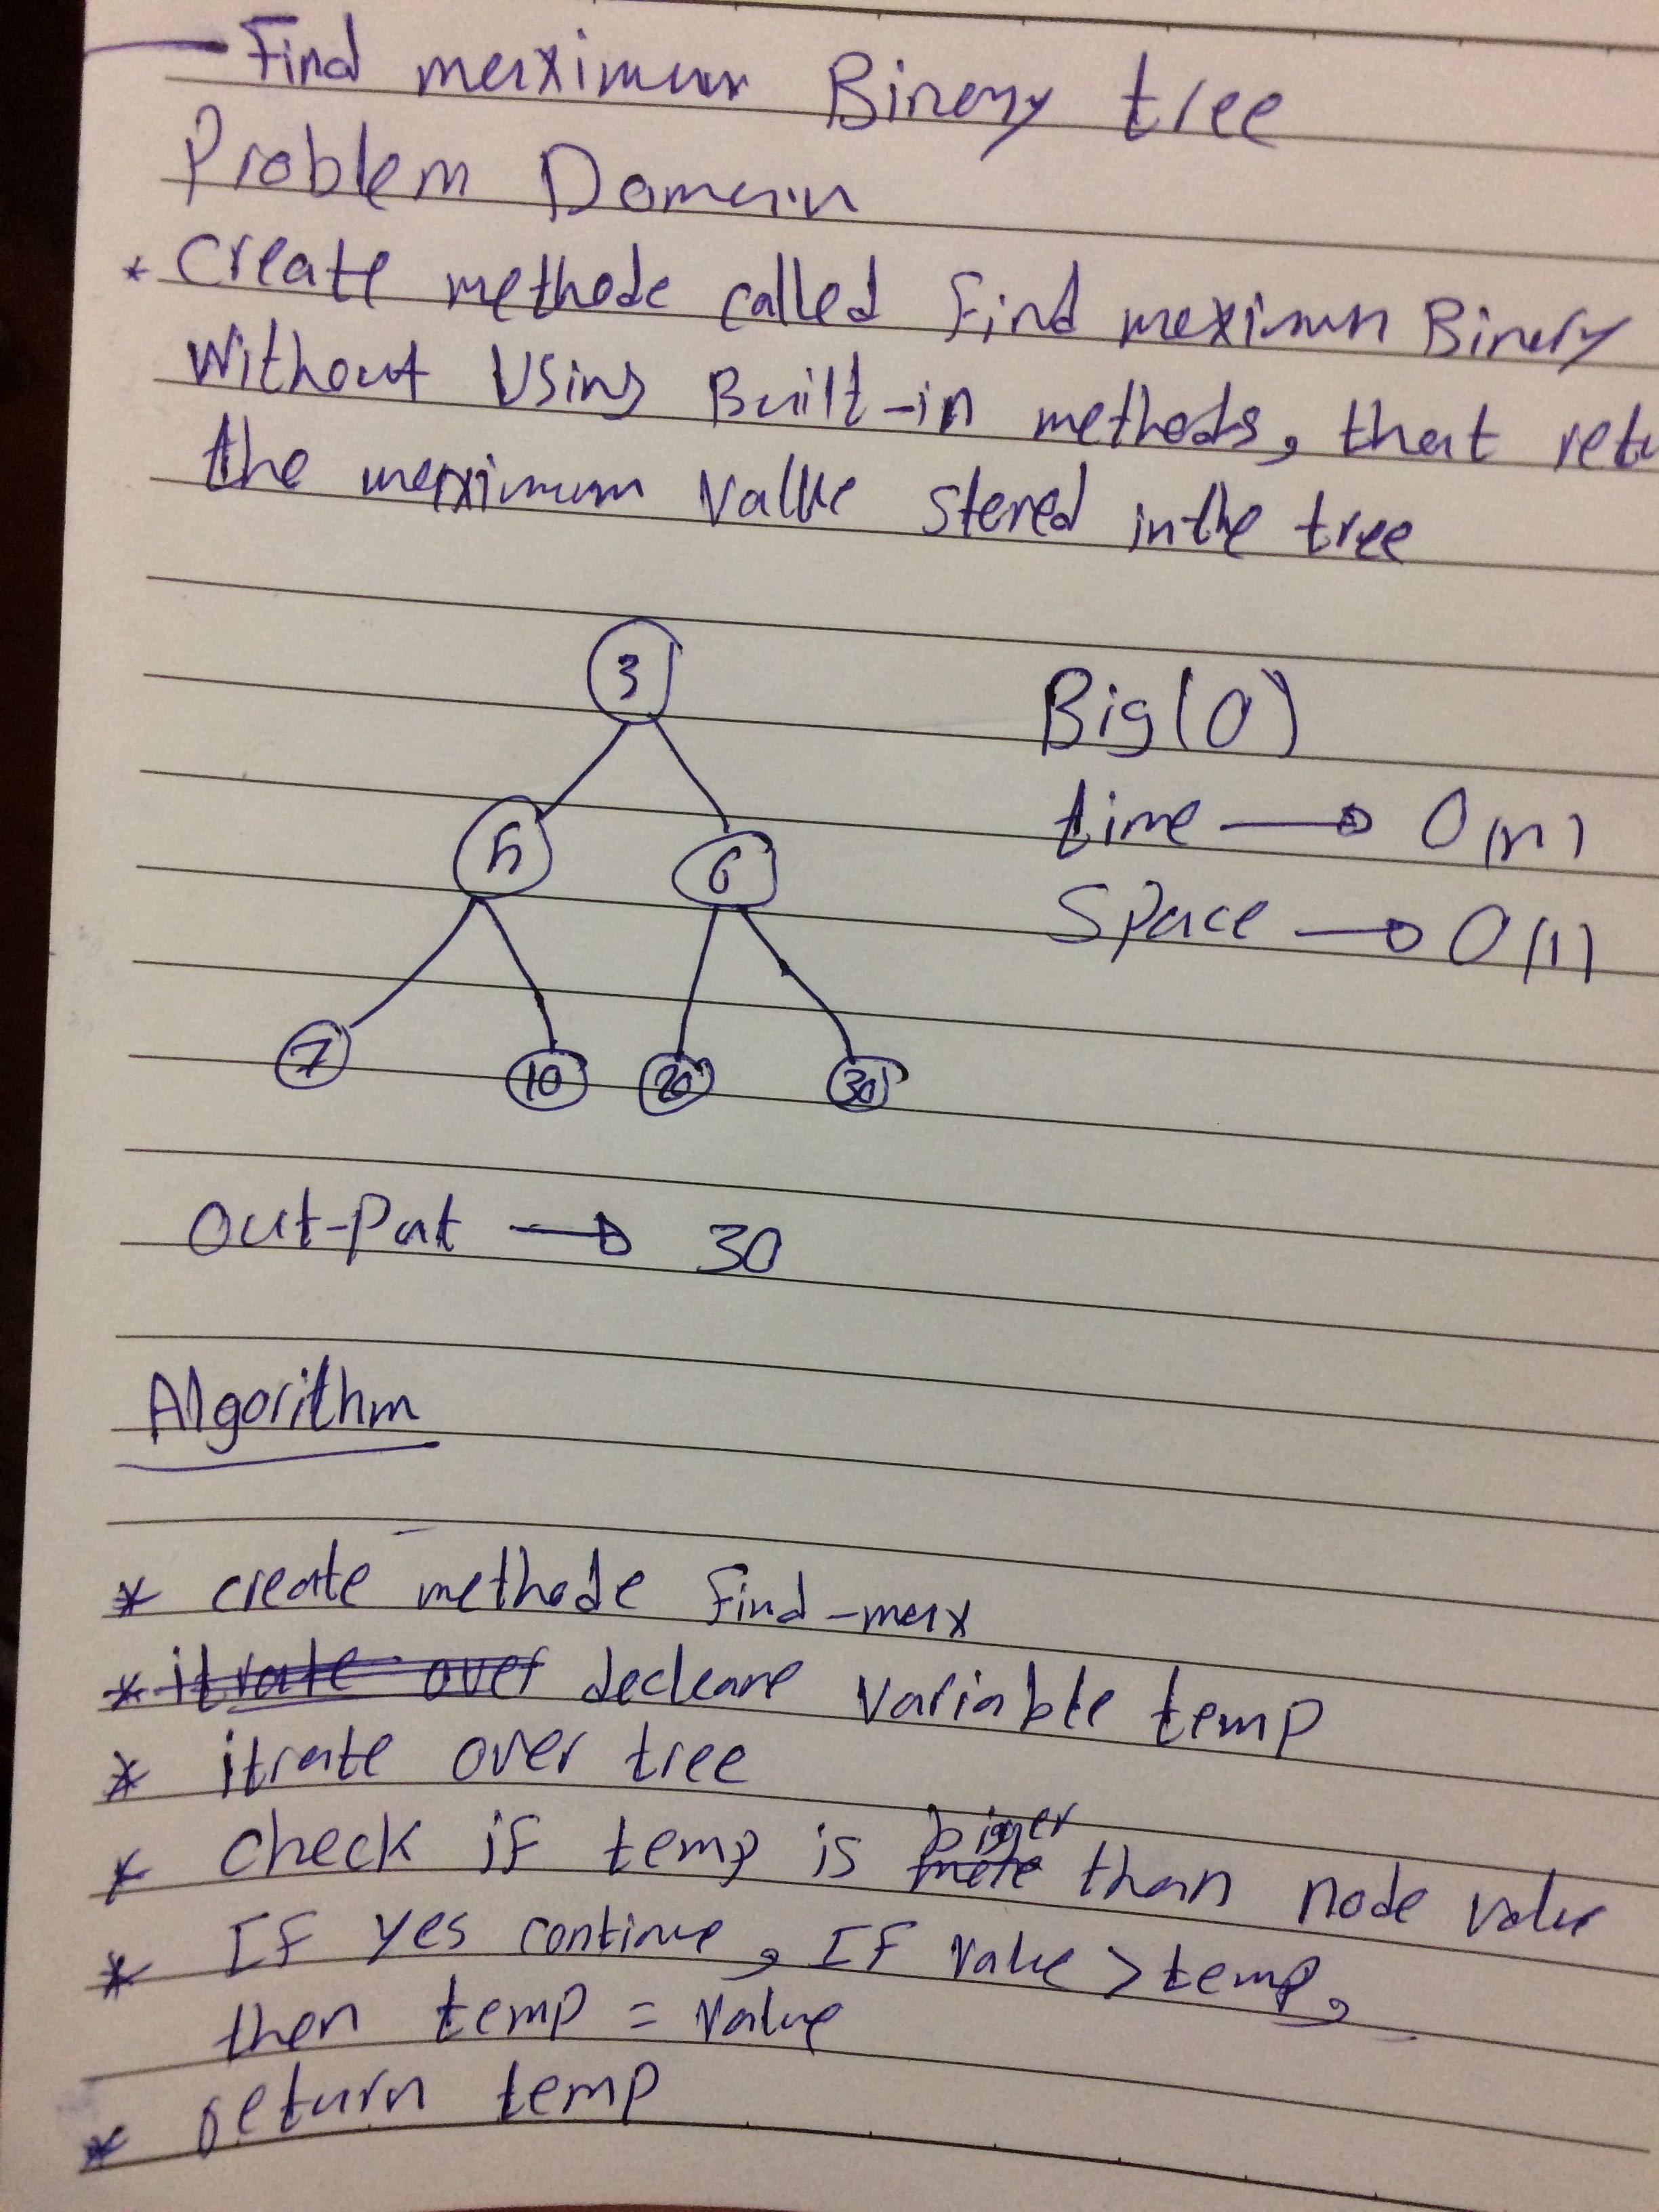 Find maximum Binary tree
Problem Domain
* create methode called Find maximun Binary
without Using Built-in methods, that retu
the maximum value stored in the tree
3
Big(O)
5 6
time → O(n)
Space → O(1)
7 10 20 30
out-Put → 30
Algorithm
* create methode find-max
* itrate over declare variable temp
* itrate over tree
* check if temp is more biger than node value
* IF yes continue, IF value > temp,
then temp = value
* return temp